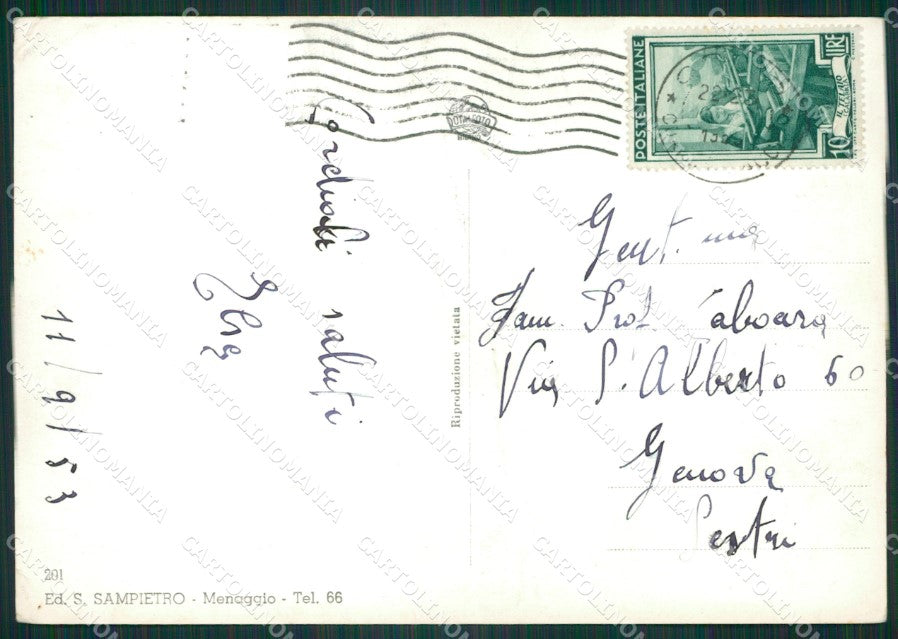 Cordiali saluti
Elsa
11/9/53
Riproduzione vietata
POSTE ITALIANE
10 LIRE
IL TELAIO
Gent. ma
Fam. Prof Taboara
Via S. Alberto 60
Genova
Sestri
201
Ed. S. SAMPIETRO - Menaggio - Tel. 66
CARTOLINOMANIA